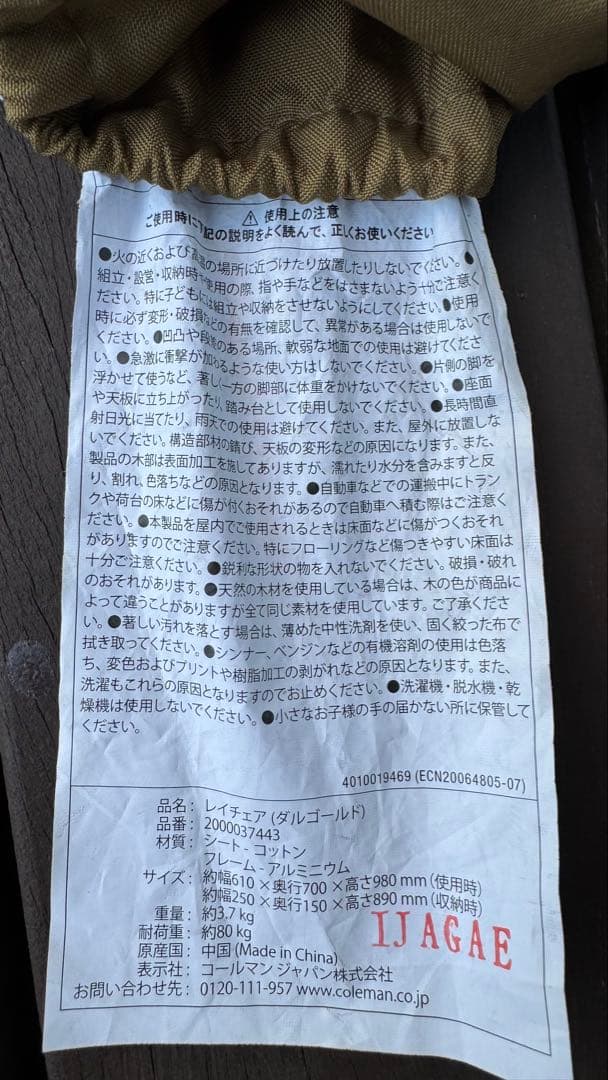 ⚠ 使用上の注意
ご使用時に下記の説明をよく読んで、正しくお使いください
●火の近くおよび高温の場所に近づけたり放置したりしないでください。●
組立・設営・収納時や使用の際、指や手などをはさまないよう十分ご注意く
ださい。特に子どもには組立や収納をさせないようにしてください。●使用
時に必ず変形・破損などの有無を確認して、異常がある場合は使用しないで
ください。●凹凸や段差のある場所、軟弱な地面での使用は避けてくださ
い。●急激に衝撃が加わるような使い方はしないでください。●片側の脚を
浮かせて使うなど、著しく一方の脚部に体重をかけないでください。●座面
や天板に立ち上がったり、踏み台として使用しないでください。●長時間直
射日光に当てたり、雨天での使用は避けてください。また、屋外に放置しな
いでください。構造部材の錆び、天板の変形などの原因になります。また、
製品の木部は表面加工を施してありますが、濡れたり水分を含みますと反
り、割れ、色落ちなどの原因となります。●自動車などでの運搬中にトラン
クや荷台の床などに傷が付くおそれがあるので自動車へ積む際はご注意く
ださい。●本製品を屋内でご使用されるときは床面などに傷がつくおそれ
がありますのでご注意ください。特にフローリングなど傷つきやすい床面は
十分ご注意ください。●鋭利な形状の物を入れないでください。破損・破れ
のおそれがあります。●天然の木材を使用している場合は、木の色が商品に
よって違うことがありますが全て同じ素材を使用しています。ご了承くださ
い。●著しい汚れを落とす場合は、薄めた中性洗剤を使い、固く絞った布で
拭き取ってください。●シンナー、ベンジンなどの有機溶剤の使用は色落
ち、変色およびプリントや樹脂加工の剥がれなどの原因となります。また、
洗濯もこれらの原因となりますのでお止めください。●洗濯機・脱水機・乾
燥機は使用しないでください。●小さなお子様の手の届かない所に保管して
ください。
4010019469 (ECN20064805-07)
品名： レイチェア (ダルゴールド)
品番： 2000037443
材質： シート - コットン
フレーム - アルミニウム
サイズ： 約幅610 × 奥行700 × 高さ980 mm (使用時)
約幅250 × 奥行150 × 高さ890 mm (収納時)
重量： 約3.7 kg
耐荷重： 約80 kg
原産国： 中国 (Made in China)
表示社： コールマン ジャパン株式会社
お問い合わせ先： 0120-111-957 www.coleman.co.jp
IJAGAE